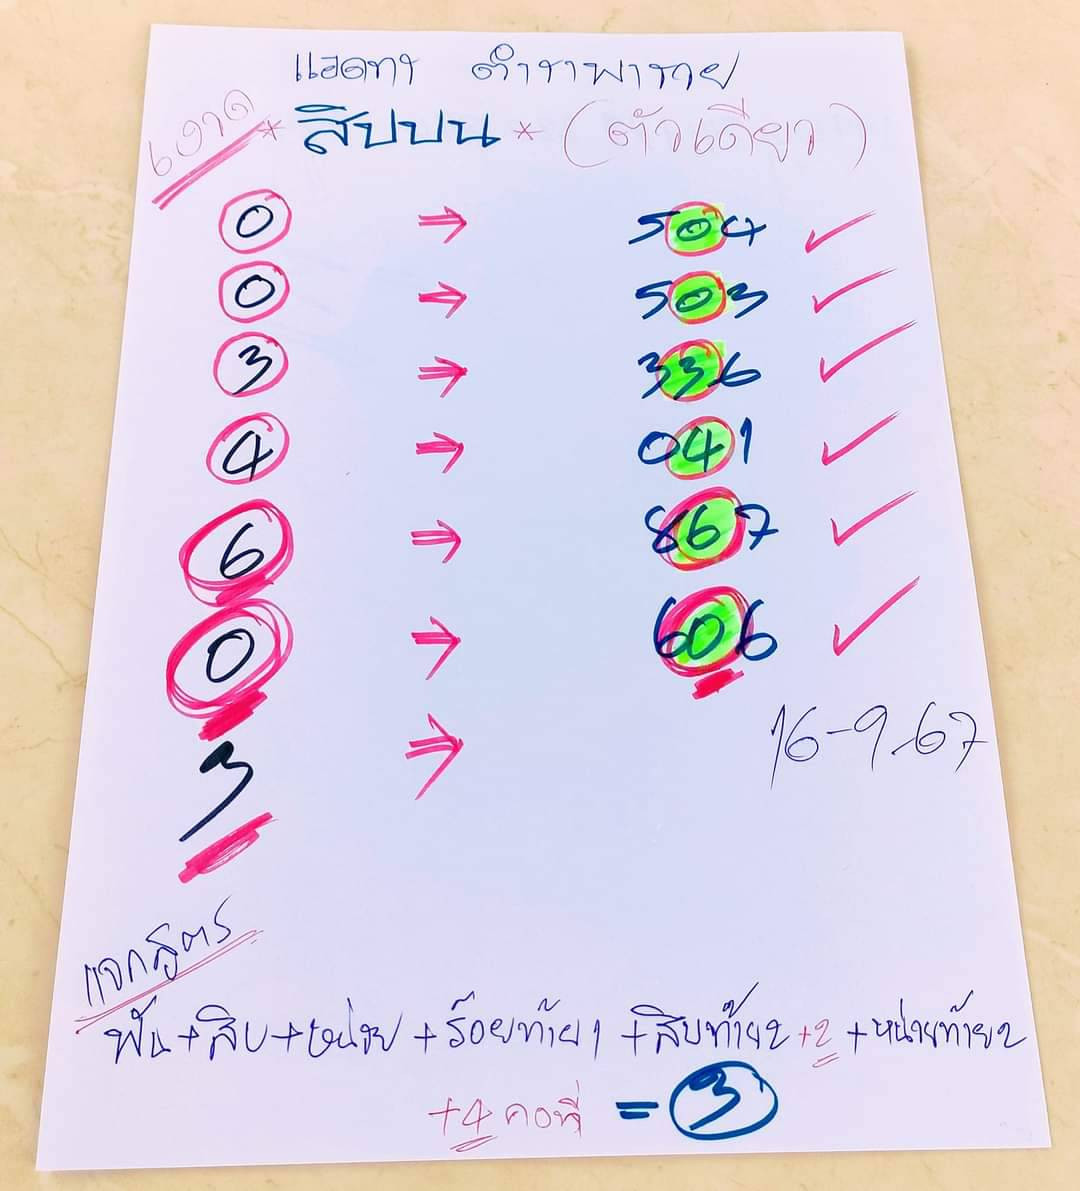 แอดทร ตำราพารวย
เงาด * สิบบน * (ตัวเดียว)
0 → 504 ✓
0 → 503 ✓
3 → 336 ✓
4 → 041 ✓
6 → 867 ✓
0 → 606 ✓
3 →
16-9-67
แจกสูตร
พัน+สิบ+หน่วย+ร้อยท้าย1+สิบท้าย2+2+หน่วยท้าย2
+4 คงที่ = 3